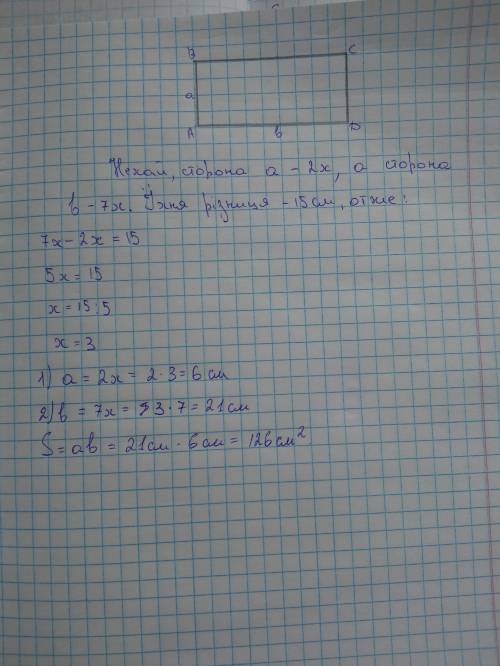 B C
a
A в D
Нехай, сторона a - 2x, а сторона
в - 7x. Їхня різниця - 15 см, отже:
7x - 2x = 15
5x = 15
x = 15:5
x = 3
1) a = 2x = 2 · 3 = 6 см
2) в = 7x = 3 · 7 = 21 см
S = aв = 21 см · 6 см = 126 см²